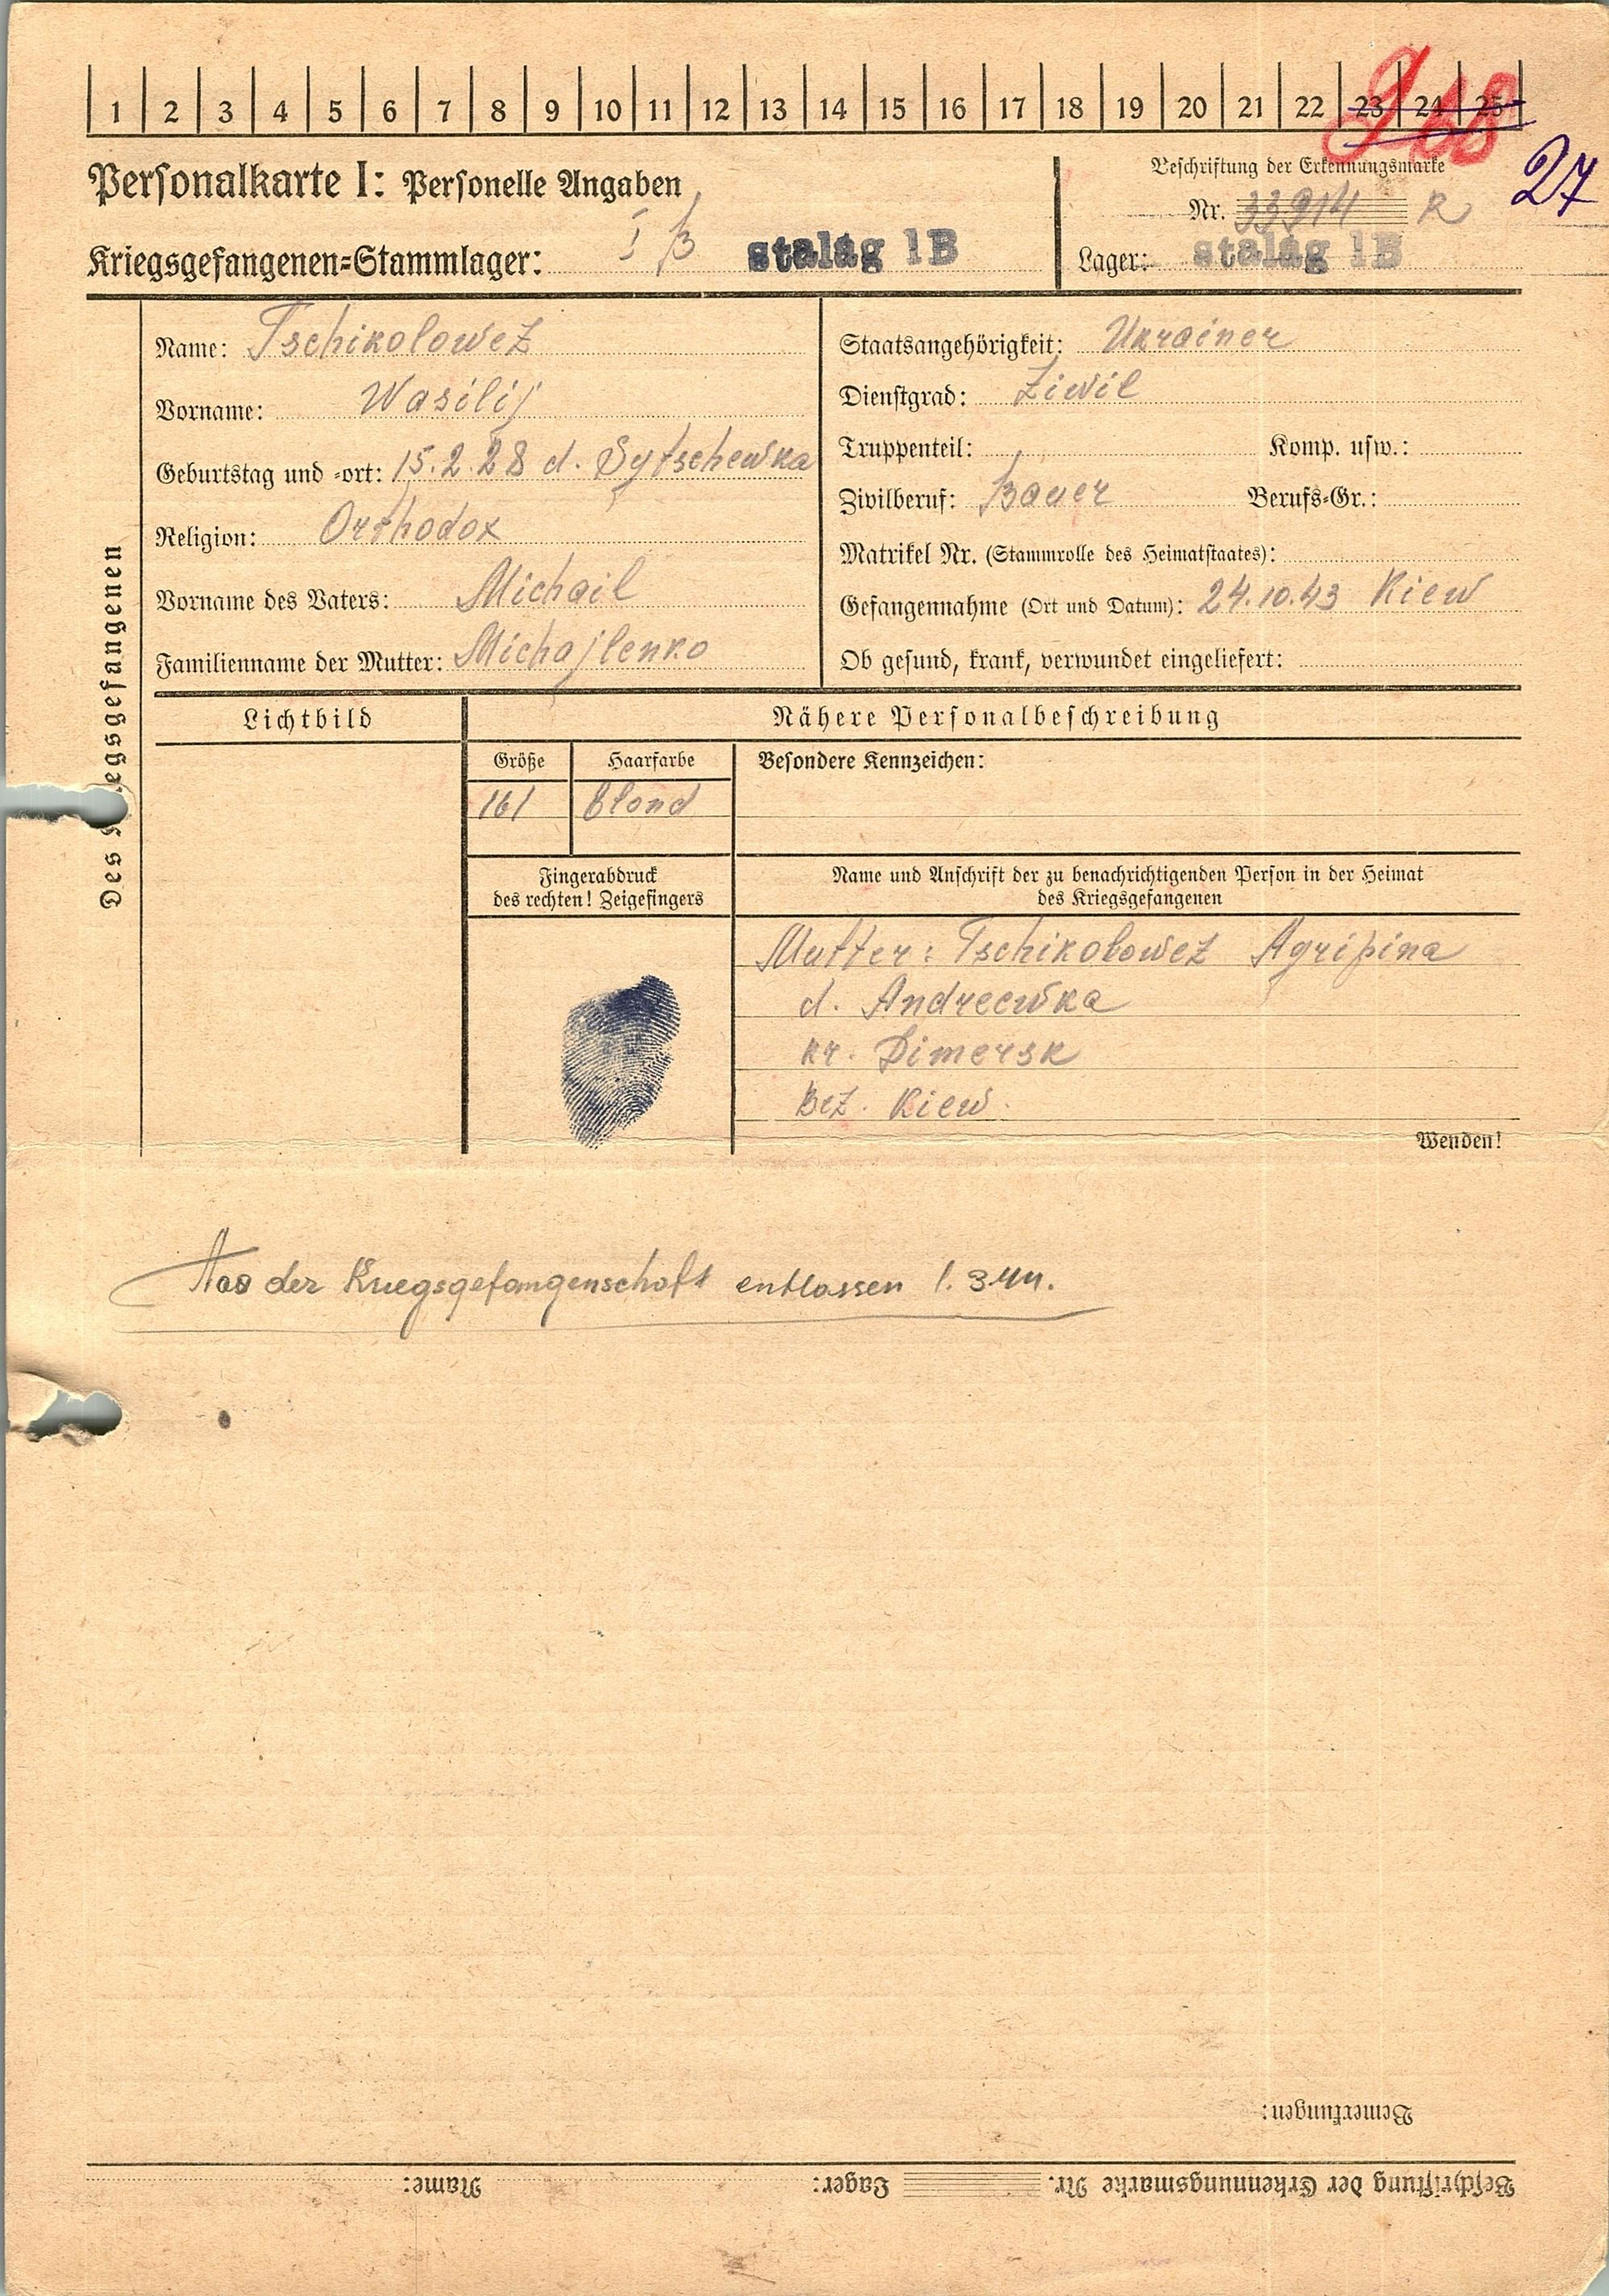 1 2 3 4 5 6 7 8 9 10 11 12 13 14 15 16 17 18 19 20 21 22 23 24 25
27
Personalkarte I: Personelle Angaben
Beschriftung der Erkennungsmarke
Nr. 33914 R
Kriegsgefangenen-Stammlager: I B stalag 1B
Lager: stalag 1B
Des Kriegsgefangenen
Name: Tschikolowez
Vorname: Wasilij
Geburtstag und -ort: 15.2.28 d. Sytschewka
Religion: Orthodox
Vorname des Vaters: Michail
Familienname der Mutter: Michajlenko
Staatsangehörigkeit: Ukrainer
Dienstgrad: Ziwil
Truppenteil: Komp. usw.:
Zivilberuf: Bauer Berufs-Gr.:
Matrikel Nr. (Stammrolle des Heimatstaates):
Gefangennahme (Ort und Datum): 24.10.43 Kiew
Ob gesund, krank, verwundet eingeliefert:
Lichtbild
Nähere Personalbeschreibung
Größe Haarfarbe Besondere Kennzeichen:
161 blond
Fingerabdruck
des rechten! Zeigefingers
Name und Anschrift der zu benachrichtigenden Person in der Heimat
des Kriegsgefangenen
Mutter: Tschikolowez Agripina
d. Andreewka
kr. Dimersk
Bez. Kiew.
Wenden!
Aus der Kriegsgefangenschaft entlassen 1. 3 44.
Bemerkungen:
Beschriftung der Erkennungsmarke Nr. Lager: Name: